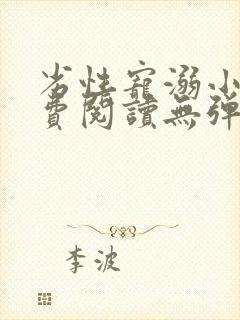 劣性寵溺小
費閱讀無彈
李波